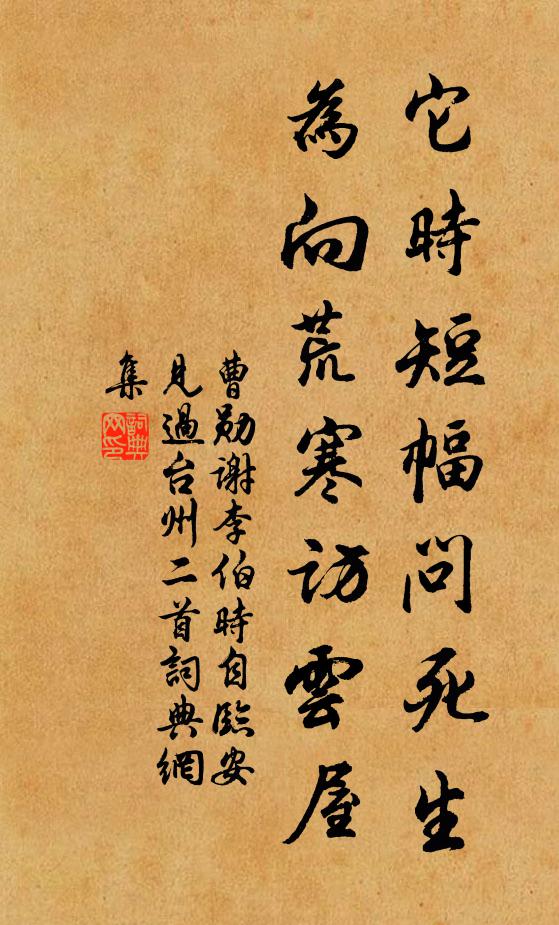 它時短幅問死生
為向荒寒訪雲屋
曹勛謝李伯時自臨安
見過台州二首詞典網
集
詞典
网印